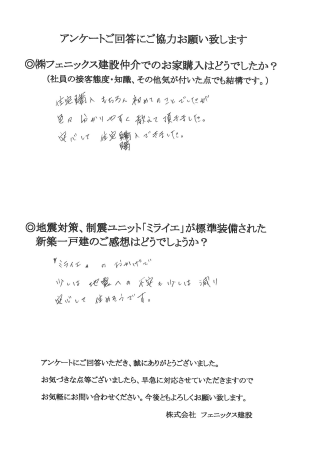 アンケートご回答にご協力お願い致します
◎㈱フェニックス建設仲介でのお家購入はどうでしたか？
（社員の接客態度・知識、その他気が付いた点でも結構です。）
住宅購入 もちろん 初めてのことでしたが
分かりやすく 教えて 頂きました。
安心して 住宅購入 できました。
◎地震対策、制震ユニット「ミライエ」が標準装備された
新築一戸建のご感想はどうでしょうか？
『ミライエ』の おかげで
少しは 地震への 不安も 少しは 減り
安心して 住めそうです。
アンケートにご回答いただき、誠にありがとうございました。
お気づきな点等ございましたら、早急に対応させていただきますので
お気軽にお問い合わせください。今後ともよろしくお願い致します。
株式会社　フェニックス建設